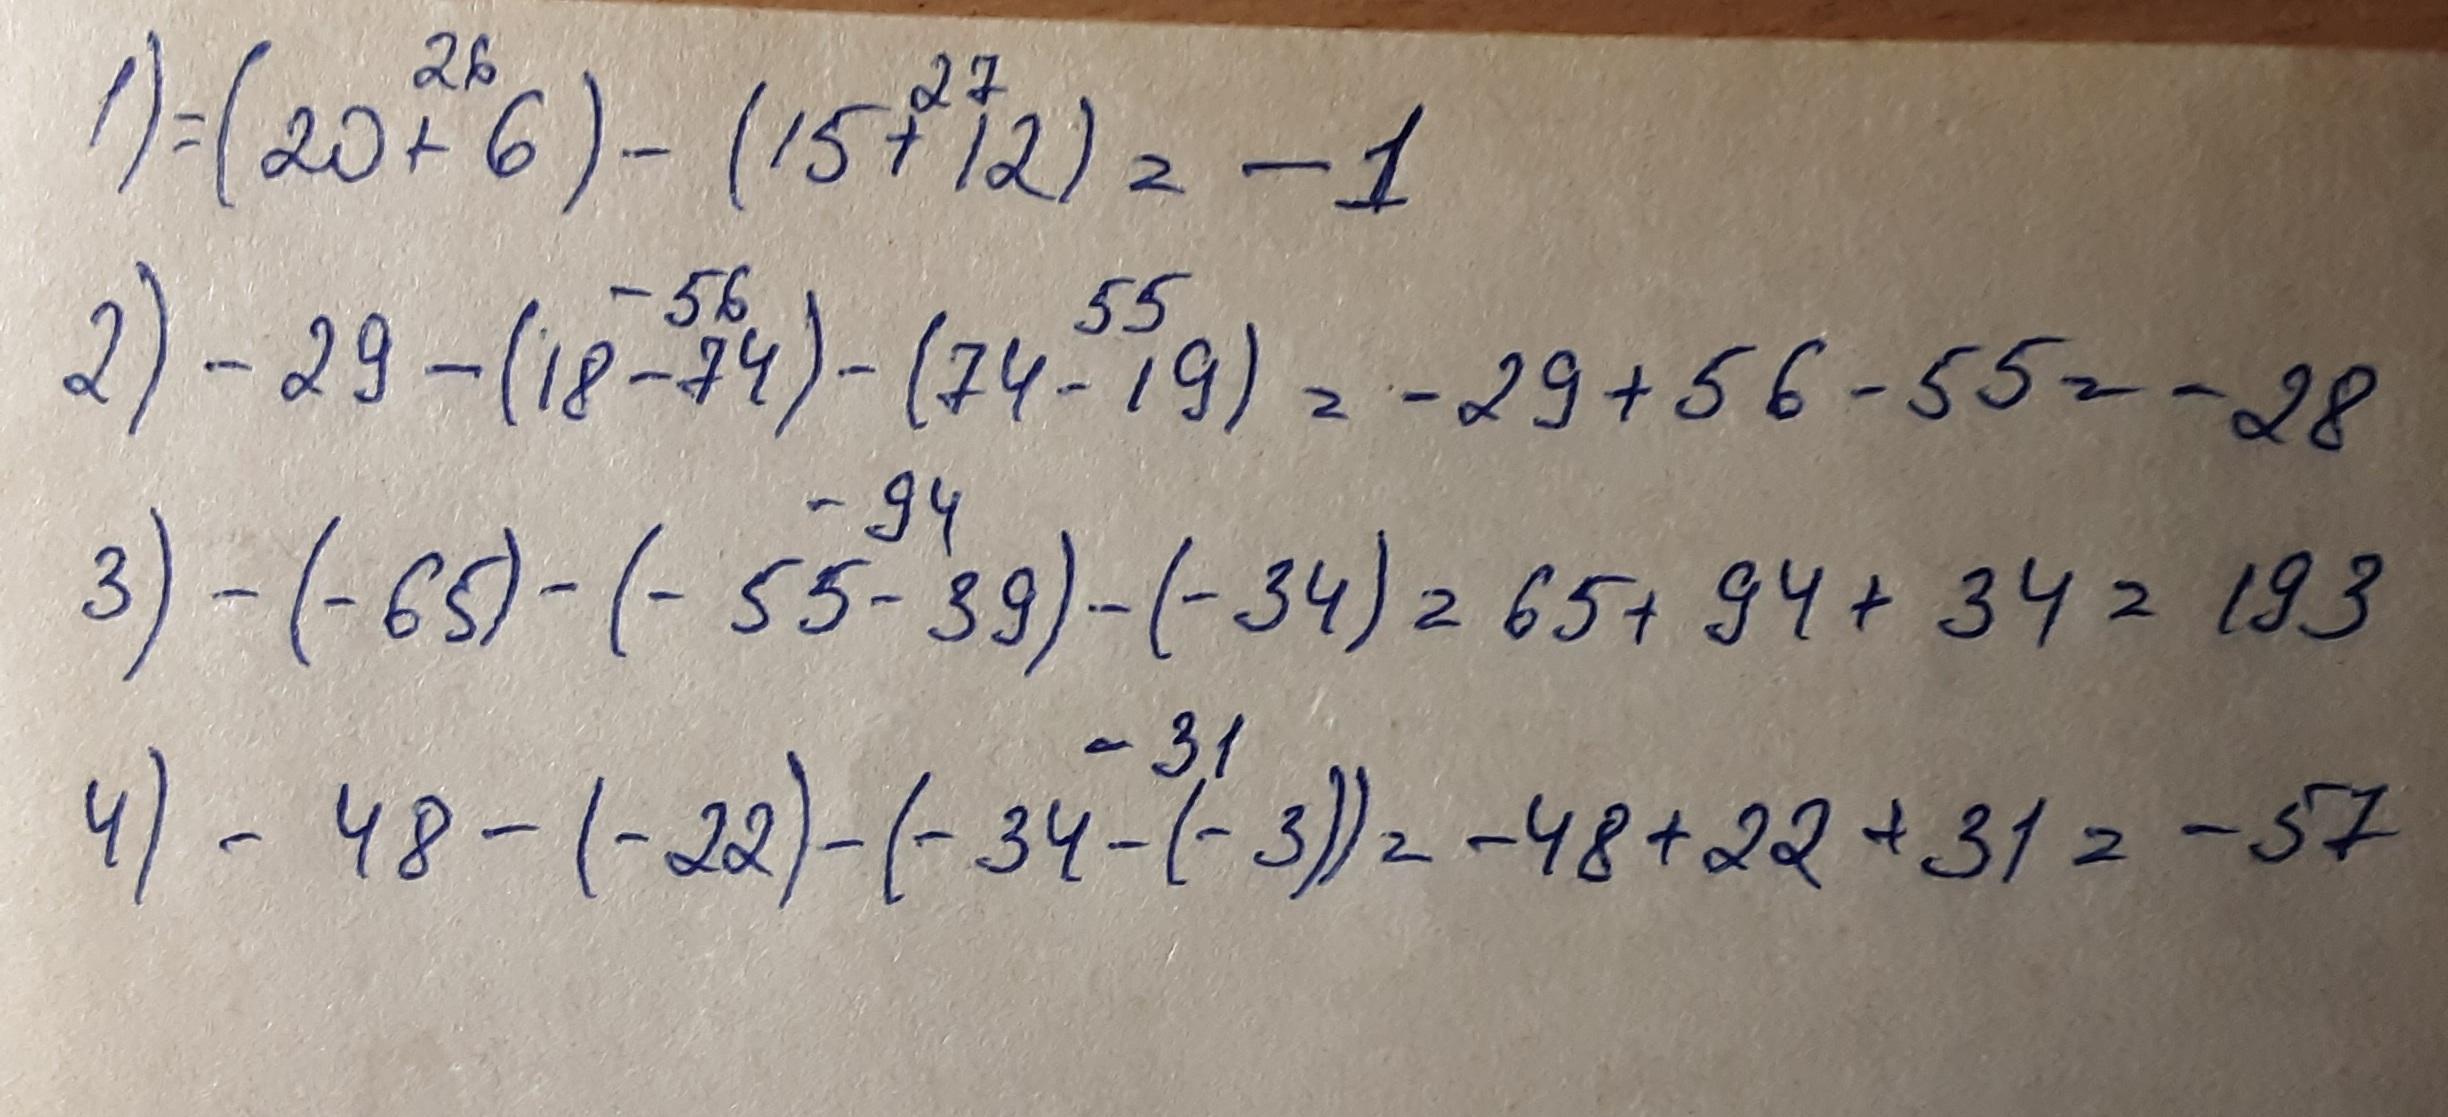 26 27
1) = (20 + 6) - (15 + 12) = - 1
-56 55
2) - 29 - (18 - 74) - (74 - 19) = - 29 + 56 - 55 = - 28
- 94
3) - (- 65) - (- 55 - 39) - (- 34) = 65 + 94 + 34 = 193
- 31
4) - 48 - (- 22) - (- 34 - (- 3)) = - 48 + 22 + 31 = - 57